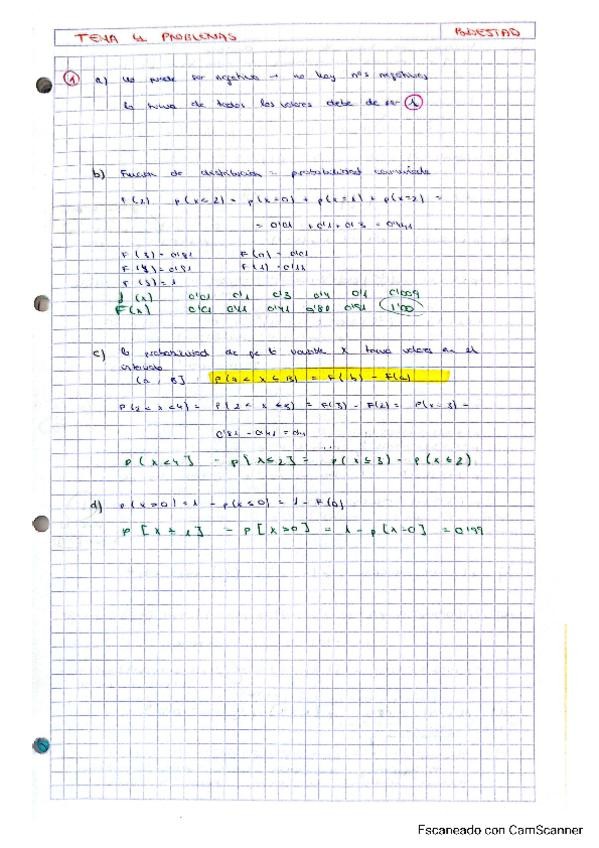 TEMA 4 PROBLEMAS
BIOESTAD
1 a) No puede ser negativo → no hay nºs negativos
la suma de todos los valores debe de ser 1
b) Función de distribución = probabilidad acumulada
F(2) p(x≤2) = p(x=0) + p(x=1) + p(x=2) =
= 0'01 + 0'1 + 0'3 = 0'41
F(3) = 0'81 F(0) = 0'01
F(4) = 0'91 F(1) = 0'11
F(5) = 1
f(x) 0'01 0'1 0'3 0'4 0'1
F(x) 0'01 0'11 0'41 0'91 1'00
c) la probabilidad de que la variable X toma valores en el
intervalo
(a, B] : P(a < x ≤ B) = F(b) - F(a)
P(2 < x < 4) = P(2 < x ≤ 3) = F(3) - F(2) = P(x=3) =
0'81 - 0'41 =
P(x<4] - P[x≤2] = P(x≤3) - P(x≤2)
d) P(x>0) = 1 - P(x≤0) = 1 - F(0)
P[x ≥ 1] = P[x>0] = 1 - P[x=0] = 0'99
Escaneado con CamScanner